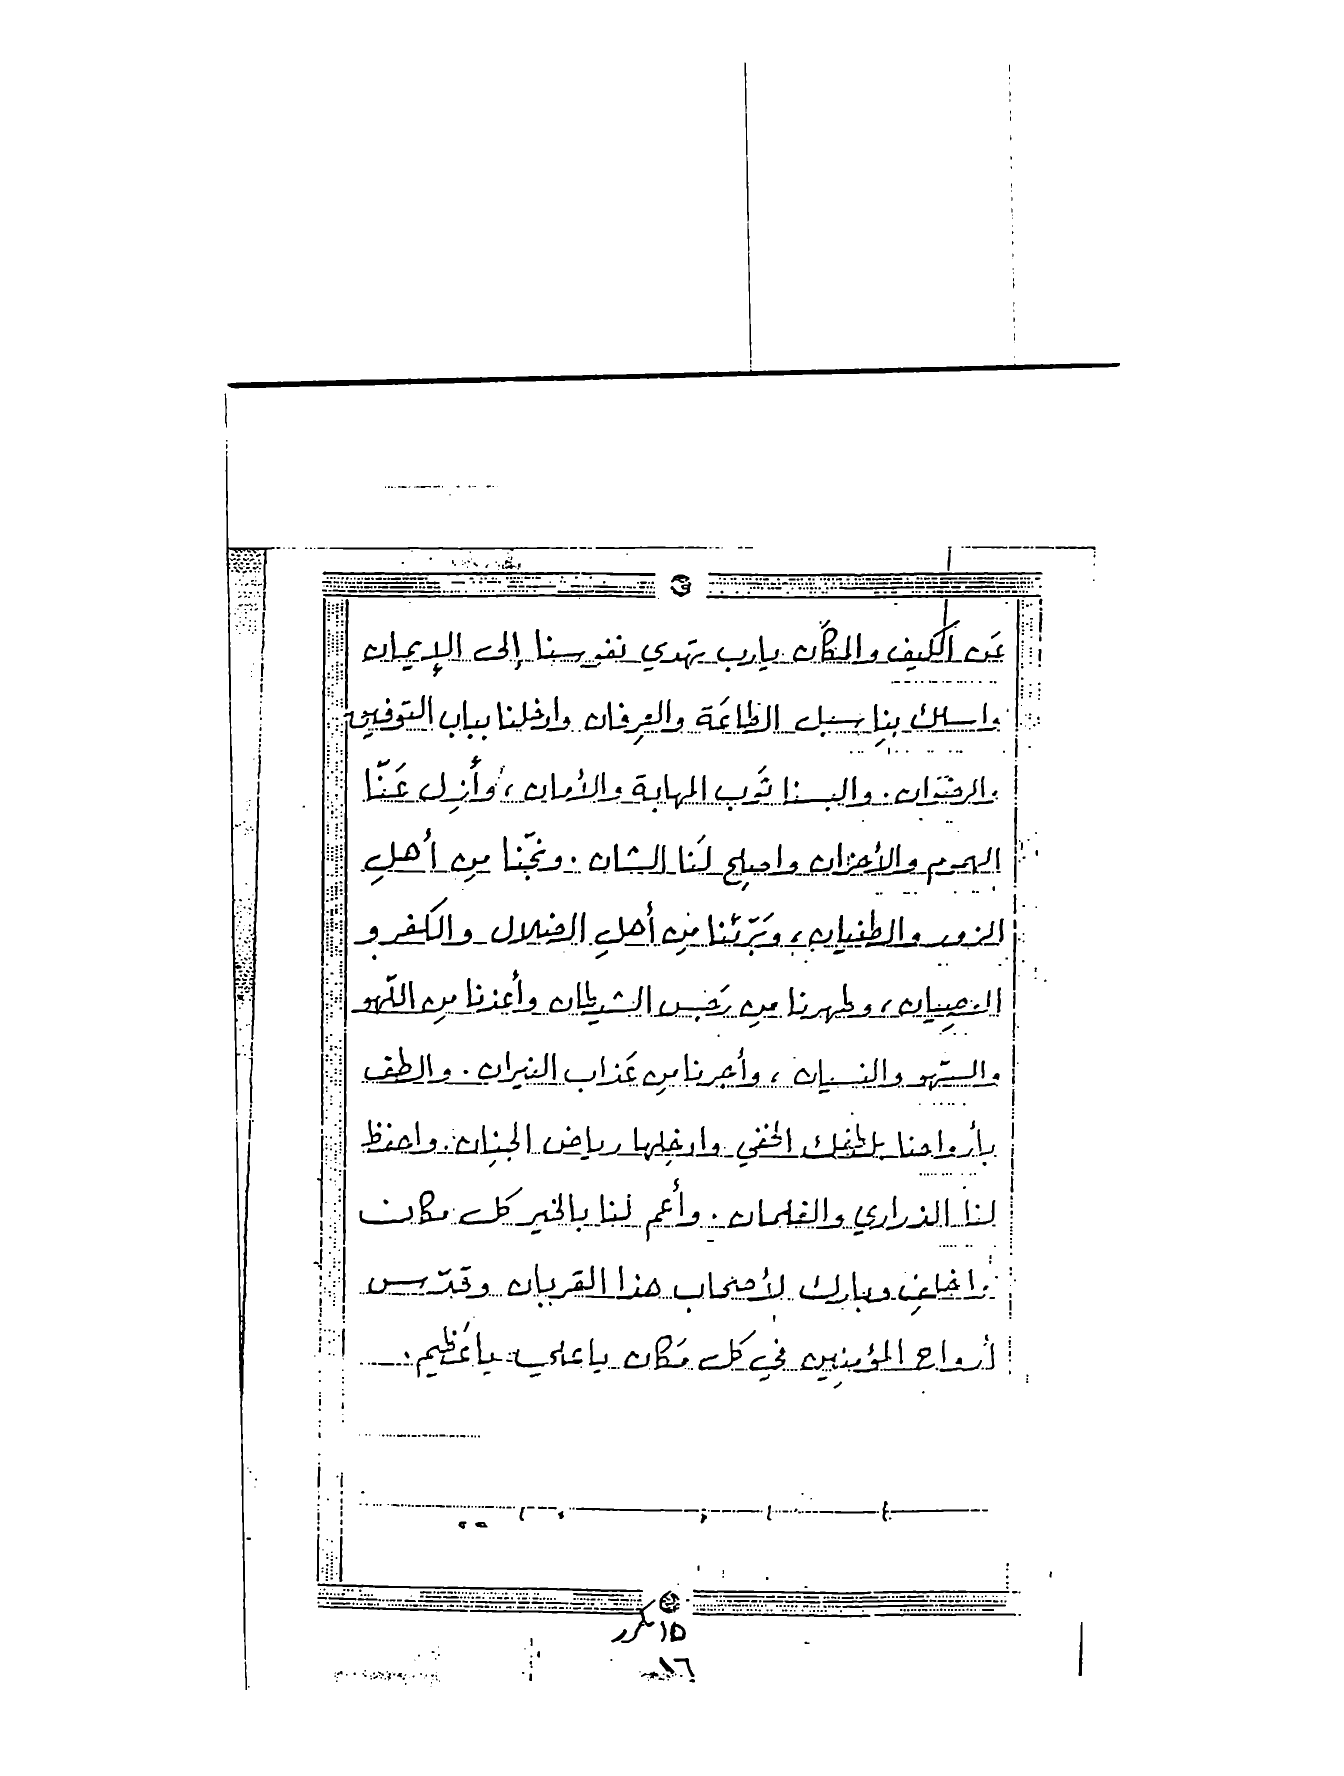 عَن الكيف والمكان يارب تهدي نفوسنا إلى الإيمان
واسلك بنِا سبل الطاعَة والعِرفان وادخلنا بباب التوفيق
والرضوان. والبسنا ثَوب المهابة والأمان، وأَزِل عَنّا
الهموم والأحزان واصلِح لَنا الشان. ونجّنا مِن أهلِ
الزور والطغيان، وبَرّئنا مِن أهلِ الضلال والكفر و
العصِيان، وطهرنا مِن رَجس الشيطان وأعذنا مِن اللّهو
والسّهو والنسيان، وأجرنا مِن عَذاب النيران. والطف
بأرواحنا بلطفك الخفي وادخِلها رياض الجنِان. واحفظ
لنا الذراري والغلمان. وأعم لنا بالخير كل مكان
واخلف وبارك لأصحاب هذا القربان وقدّس
أرواح المؤمنِين في كل مَكان يا علي يا عَظيم.
١٥ مكرر
١٦